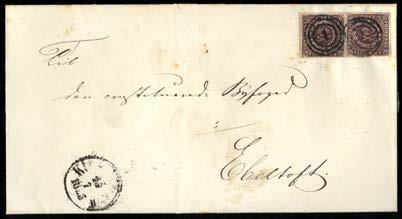 Til
den constituerede Byfoged
i
Ebeltoft.